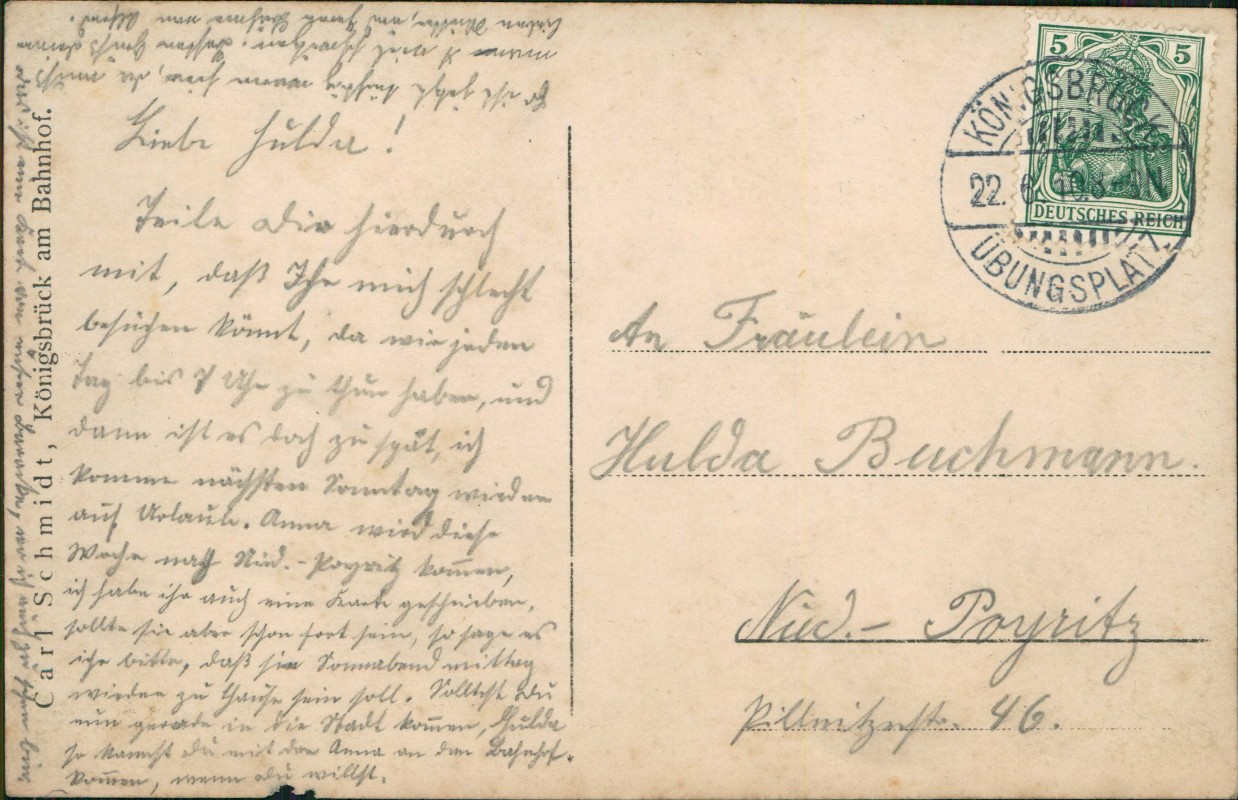 Liebe Hulda!
Teile Dir hierdurch
mit, daß Ihr mich schlecht
besuchen könnt, da wir jeden
Tag bis 7 Uhr zu thun haben, und
dann ist es doch zu spät, ich
komme nächsten Sonntag wieder
auf Urlaub. Anna wird diese
Woche nach Nied.-Poyritz kommen,
ich habe ihr auch eine Karte geschrieben,
sollte sie aber schon fort sein, so sage es
ihr bitte, daß sie Sonnabend mittag
wieder zu Hause sein soll. Solltest Du
nun gerade in die Stadt kommen, Hulda
so kannst Du mit der Anna an den Bahnhof
kommen, wenn Du willst.
Es ist jetzt hier,
mir schreiben. Gruß
lieben von Alfred.
Carl Schmidt, Königsbrück am Bahnhof.
KÖNIGSBRÜCK
22. 6. 10. 8
ÜBUNGSPLATZ
5 5
DEUTSCHES REICH
An Fräulein
Hulda Buchmann.
Nied.- Poyritz
Pillnitzerstr. 46.